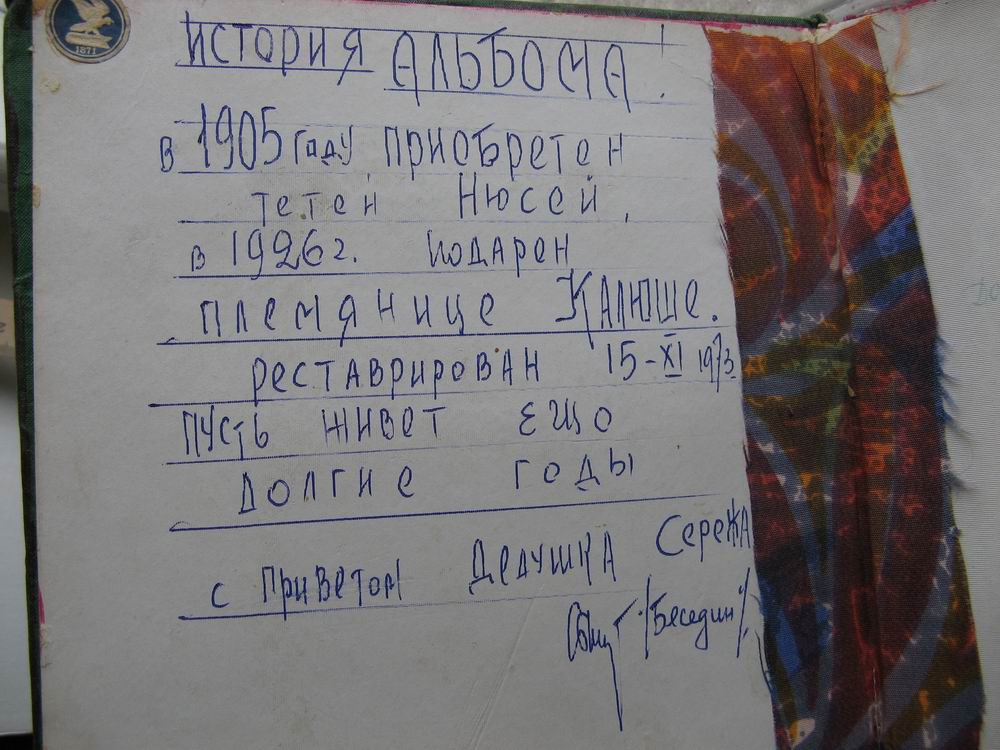 1871
ИСТОРИЯ АЛЬБОМА!
в 1905 году приобретен
тетей Нюсей,
в 1926 г. подарен
племянице Калюше.
реставрирован 15-XI 1973
пусть живет ещо
долгие годы
с приветом Дедушка Сережа
/Беседин/